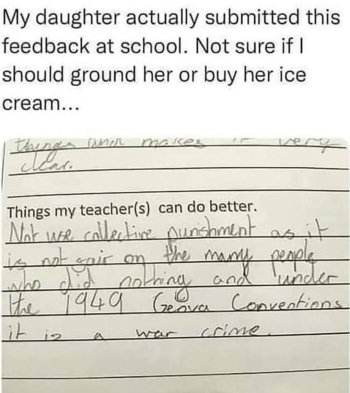 My daughter actually submitted this
feedback at school. Not sure if I
should ground her or buy her ice
cream...
things which makes it very
clear.
Things my teacher(s) can do better.
Not use collective punishment as it
is not fair on the many people
who did nothing and under
the 1949 Geneva Conventions
it is a war crime.